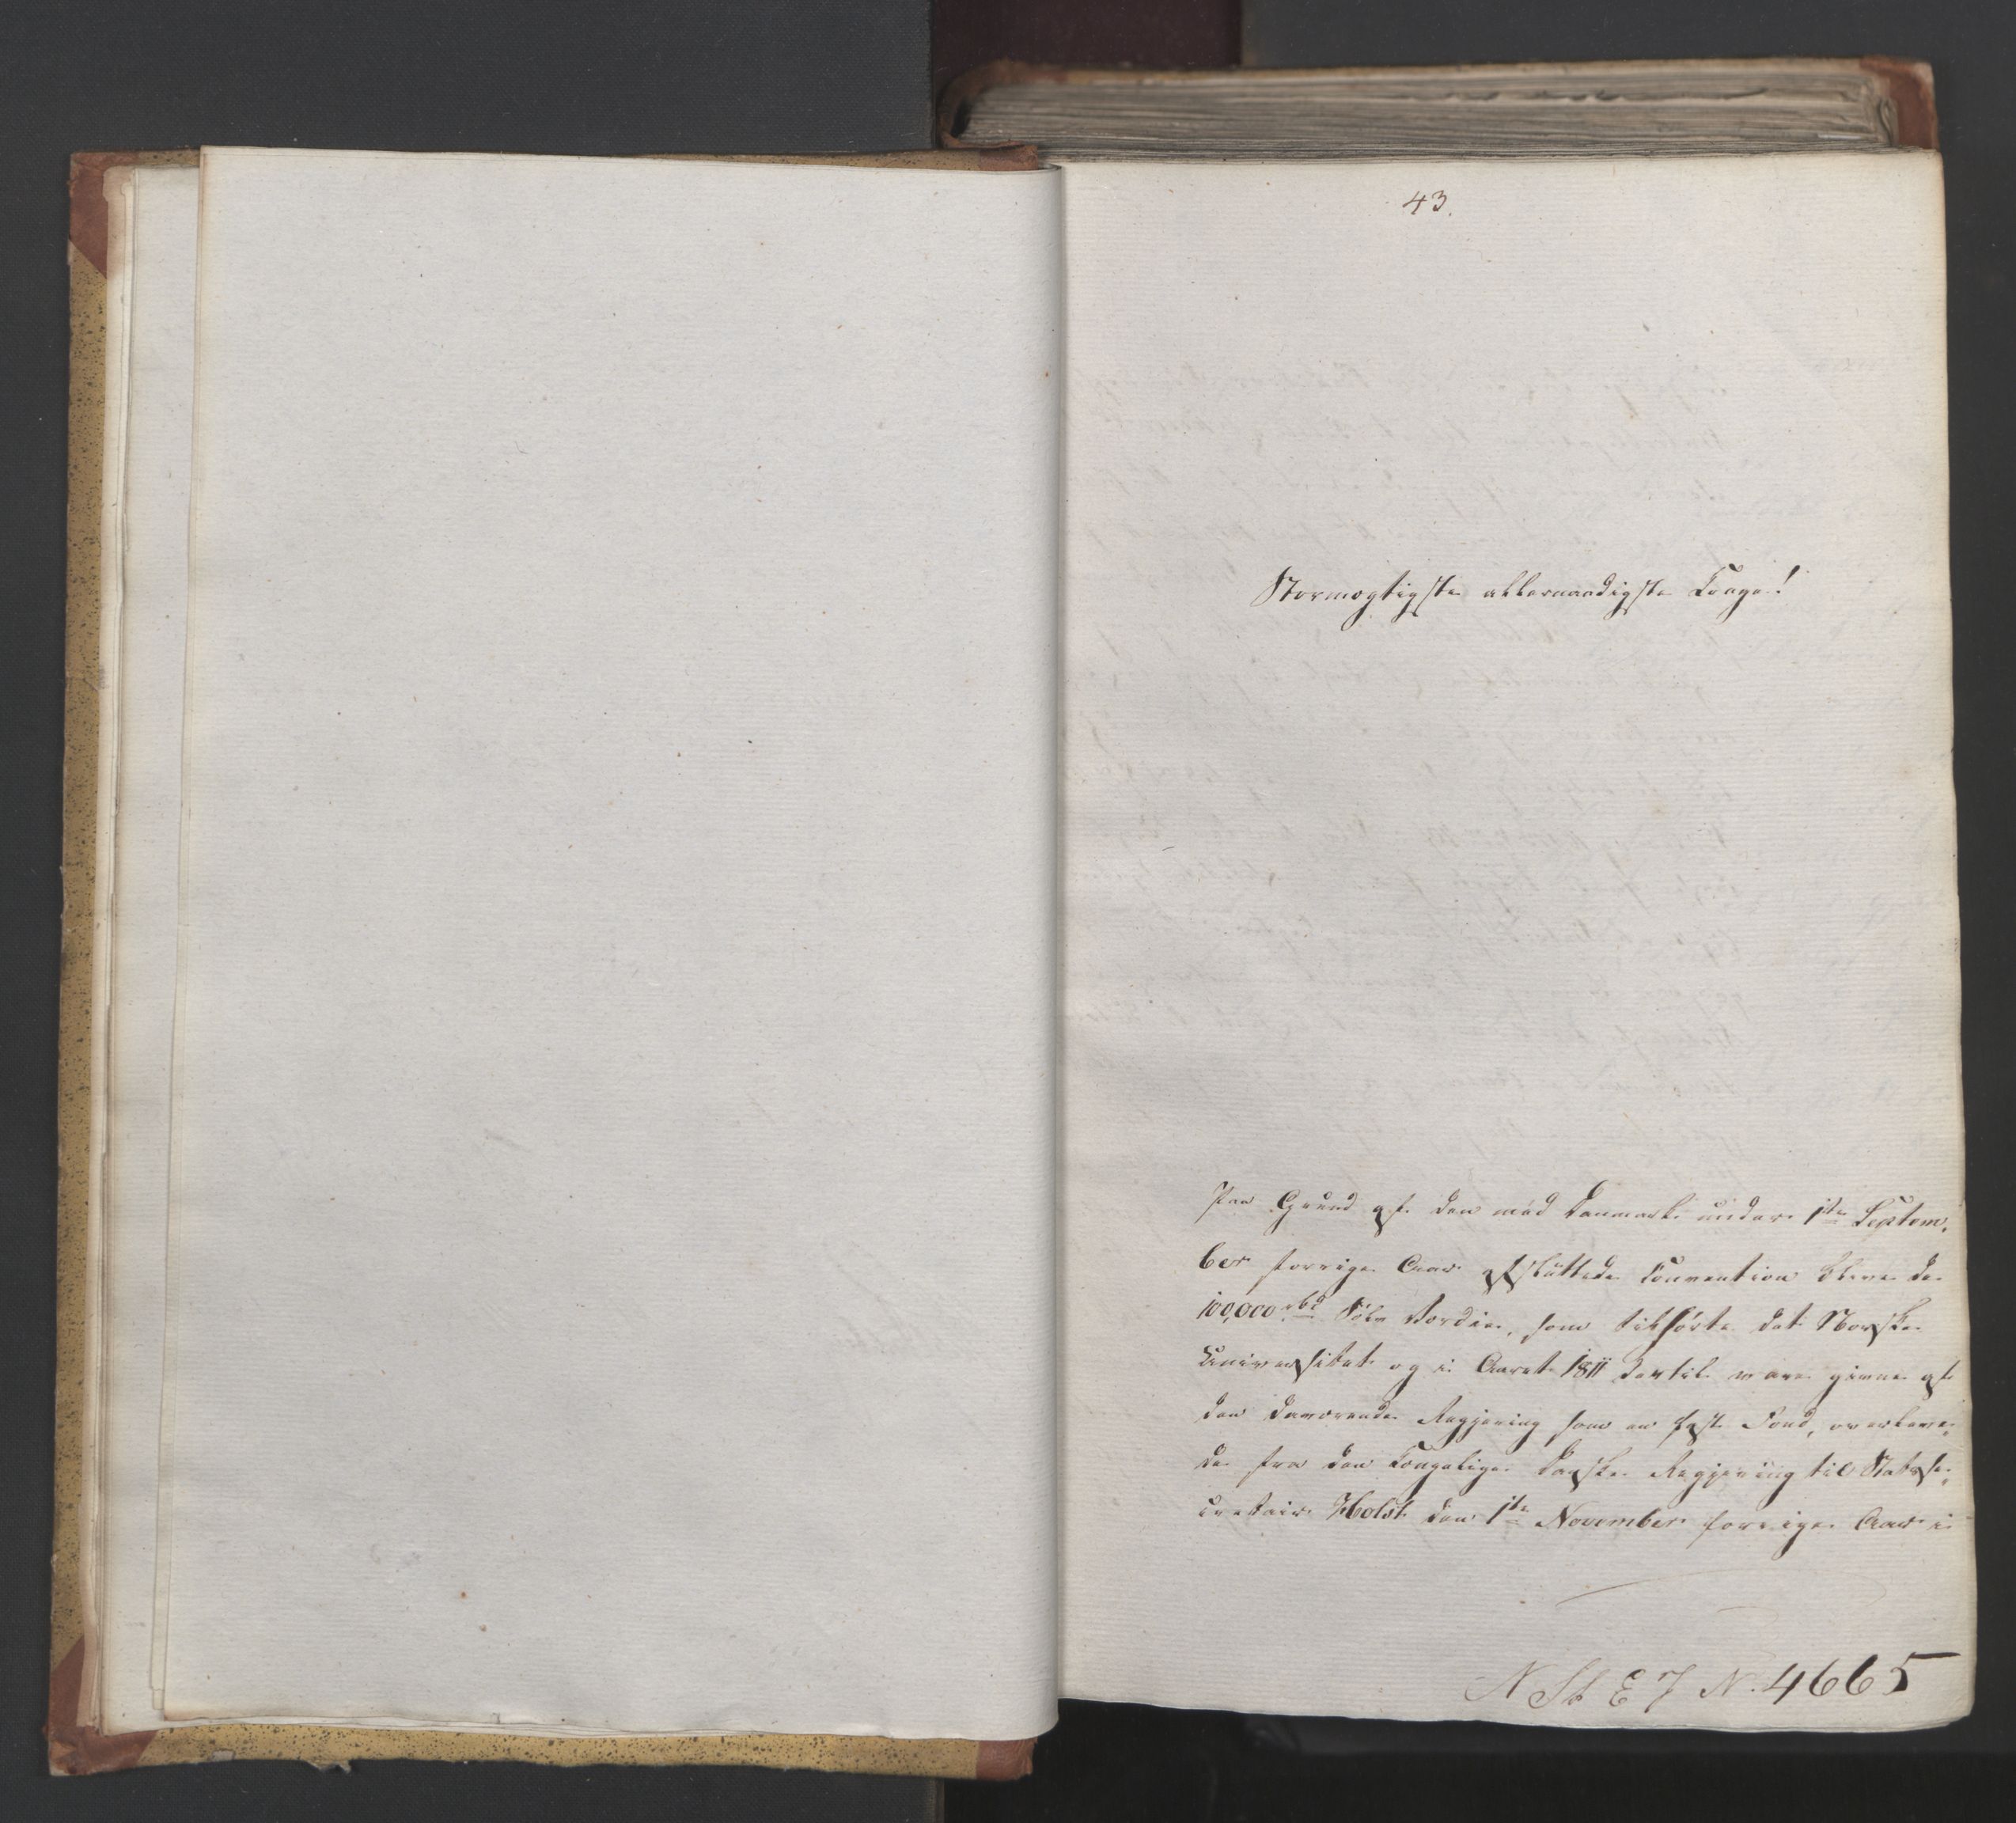 43.
Stormægtigste allernaadigste Konge!
Paa Grund af den med Danmark under 1ste Septem-
ber forrige Aar afsluttede Convention bleve de
100,000 rbd Sølv Værdie, som tilhørte det Norske
Universitet og i Aaret 1811 dertil vare givne af
den daværende Regjering som en fast Fond, overleve-
de fra den Kongelige Danske Regjering til Statsse-
cretair Holst den 1ste November forrige Aar i
N St E 7 N. 4665